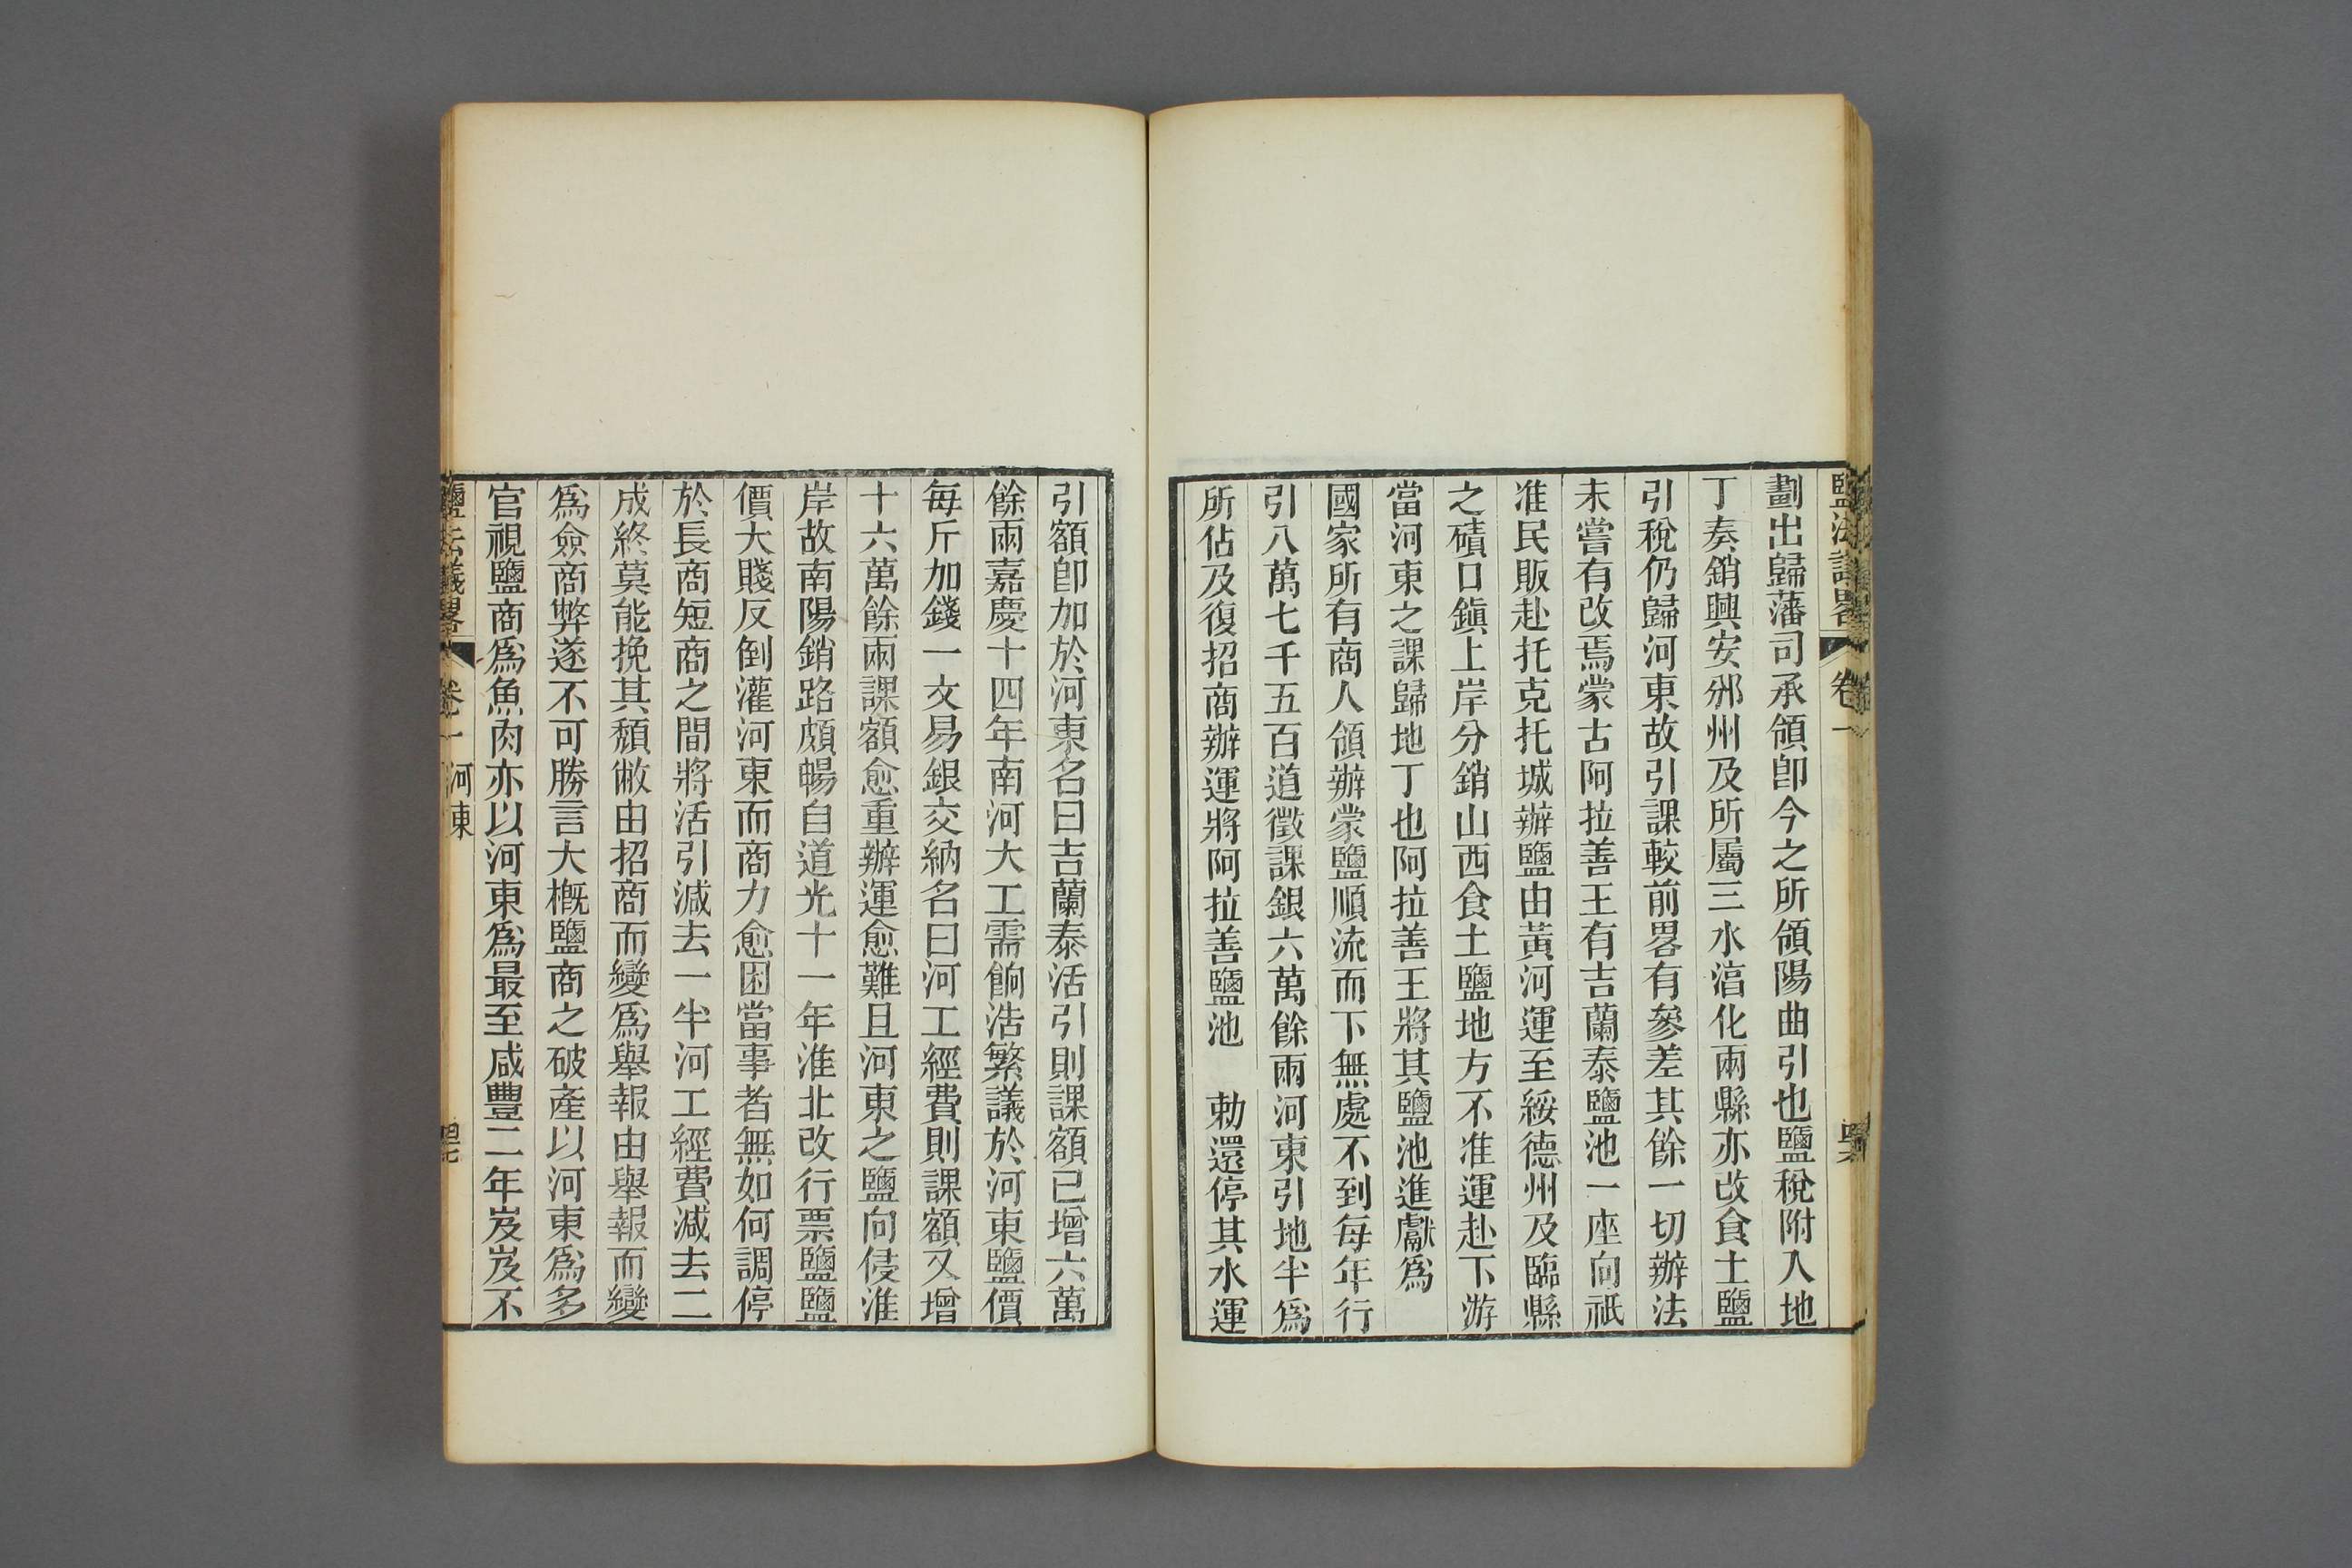 鹽法議畧 卷一 四六
劃出歸藩司承領卽今之所領陽曲引也鹽稅附入地
丁奏銷興安邠州及所屬三水湻化兩縣亦改食土鹽
引稅仍歸河東故引課較前畧有參差其餘一切辦法
未嘗有改焉蒙古阿拉善王有吉蘭泰鹽池一座向祇
准民販赴托克托城辦鹽由黃河運至綏德州及臨縣
之磧口鎭上岸分銷山西食土鹽地方不准運赴下游
當河東之課歸地丁也阿拉善王將其鹽池進獻爲
國家所有商人領辦蒙鹽順流而下無處不到每年行
引八萬七千五百道徵課銀六萬餘兩河東引地半爲
所佔及復招商辦運將阿拉善鹽池　勅還停其水運
引額卽加於河東名曰吉蘭泰活引則課額已增六萬
餘兩嘉慶十四年南河大工需餉浩繁議於河東鹽價
每斤加錢一文易銀交納名曰河工經費則課額又增
十六萬餘兩課額愈重辦運愈難且河東之鹽向侵淮
岸故南陽銷路頗暢自道光十一年淮北改行票鹽鹽
價大賤反倒灌河東而商力愈困當事者無如何調停
於長商短商之間將活引減去一半河工經費減去二
成終莫能挽其頹敝由招商而變爲舉報由舉報而變
爲僉商弊遂不可勝言大槪鹽商之破產以河東爲多
官視鹽商爲魚肉亦以河東爲最至咸豐二年岌岌不
鹽法議畧 卷一 河東 四七